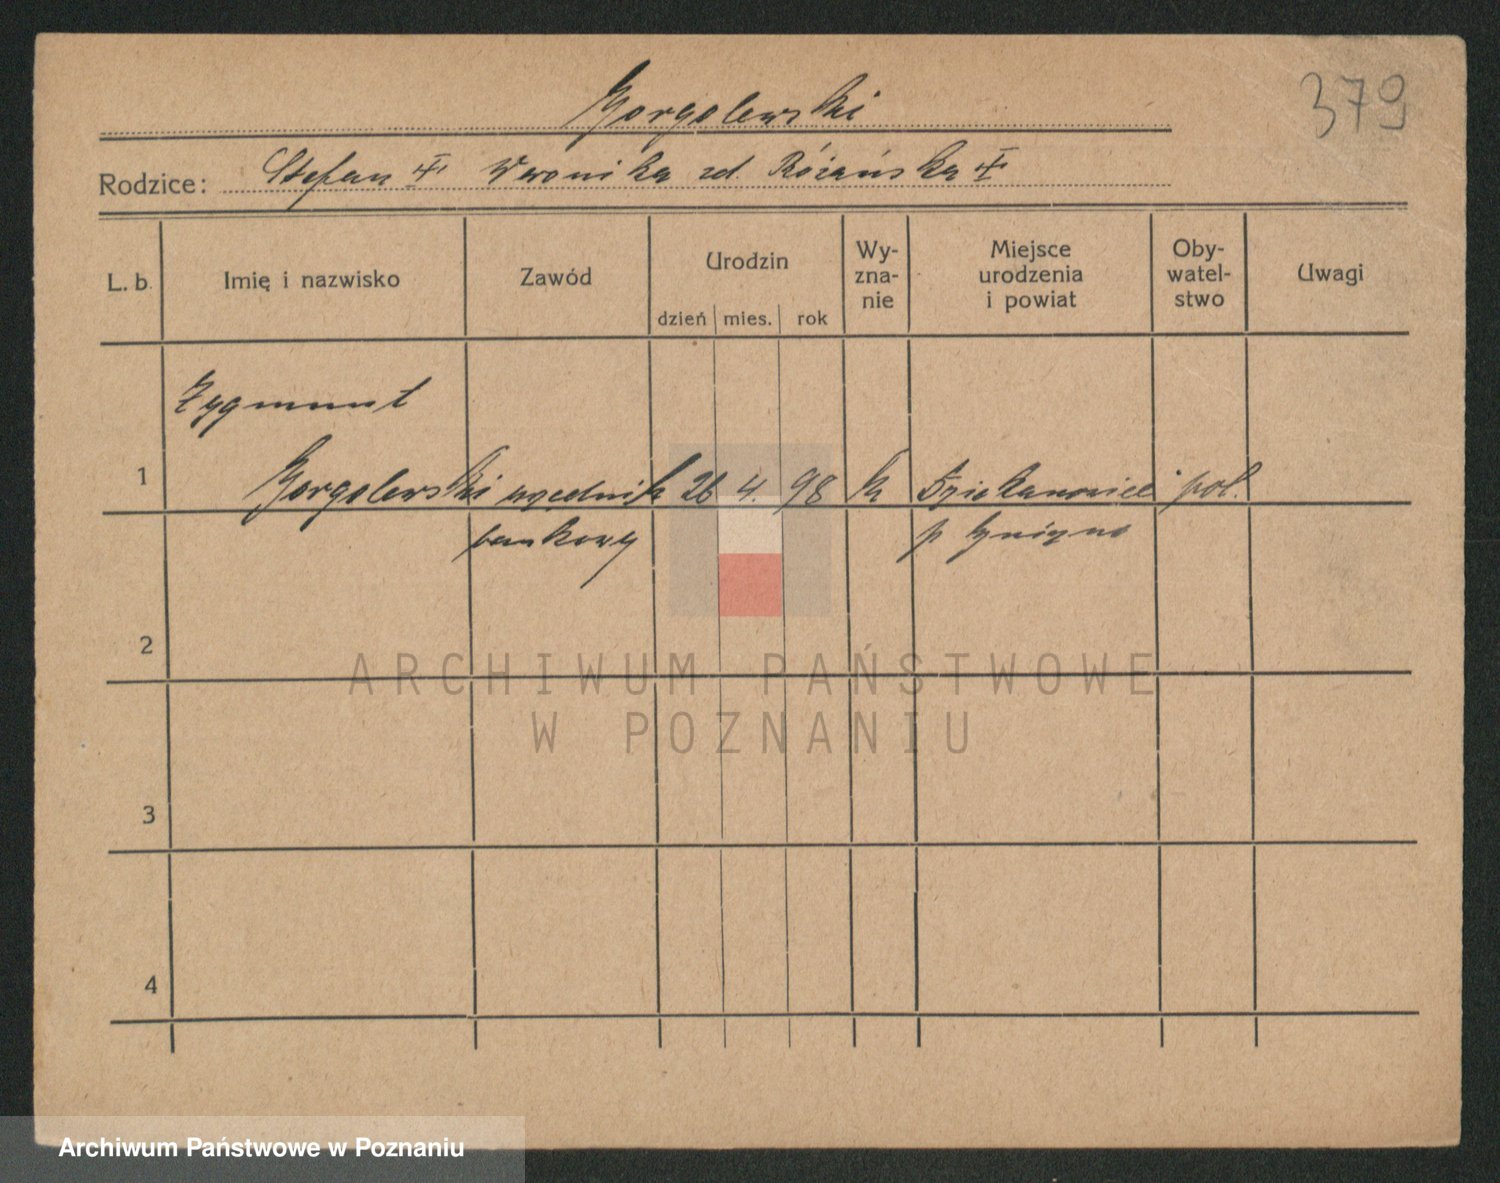 379
Gorgolewski
Rodzice: Stefan Weronika zd Różańska
L. b. Imię i nazwisko Zawód Urodzin dzień mies. rok Wy-zna-nie Miejsce urodzenia i powiat Oby-watel-stwo Uwagi
Zygmunt
1 Gorgolewski urzędnik 26 4. 98 k Dziekanowice pol.
bankowy p Gniezno
2
ARCHIWUM PAŃSTWOWE
W POZNANIU
3
4
Archiwum Państwowe w Poznaniu